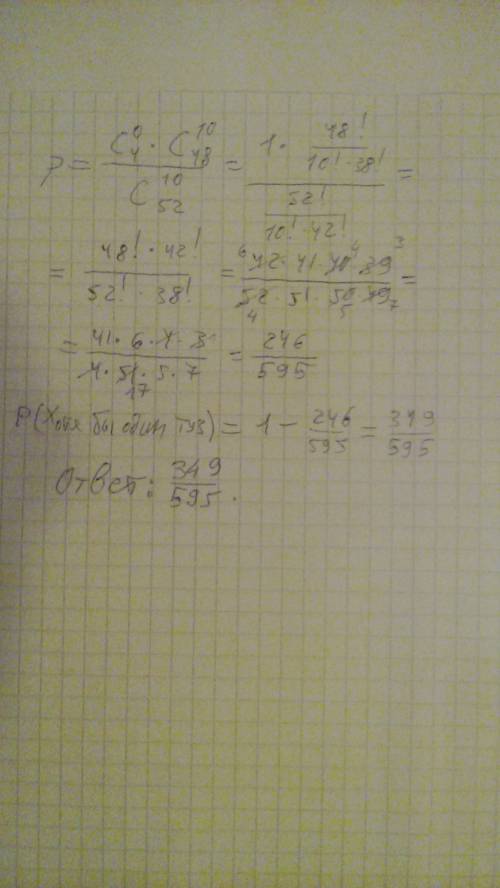 p = \frac{C_4^0 \cdot C_{48}^{10}}{C_{52}^{10}} = \frac{1 \cdot \frac{48!}{10! \cdot 38!}}{\frac{52!}{10! \cdot 42!}} =
= \frac{48! \cdot 42!}{52! \cdot 38!} = \frac{\overset{6}{42} \cdot 41 \cdot \overset{4}{40} \cdot \overset{3}{39}}{\underset{4}{52} \cdot 51 \cdot \underset{5}{50} \cdot \underset{7}{49}} =
= \frac{41 \cdot 6 \cdot 4 \cdot 3}{4 \cdot \underset{17}{51} \cdot 5 \cdot 7} = \frac{246}{595}
P(Хотя бы один туз) = 1 - \frac{246}{595} = \frac{349}{595}
Ответ: \frac{349}{595}.